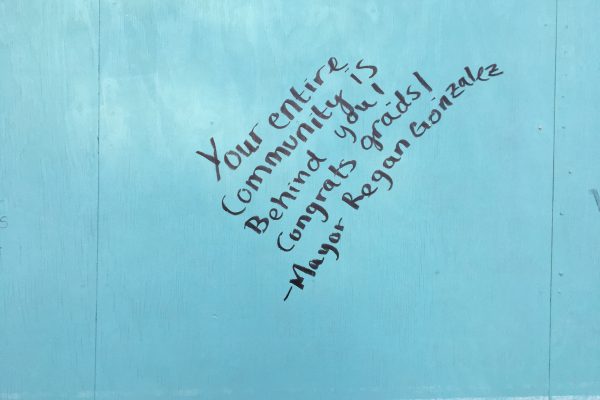 Your entire
Community is
Behind you!
Congrats grads!
-Mayor Regan Gonzalez